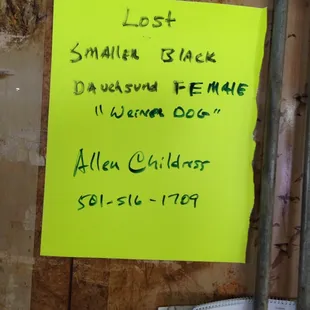 Lost
Smaller Black
Dauchsund FEMALE
"Weiner DOG"
Allen Childress
501-516-1709